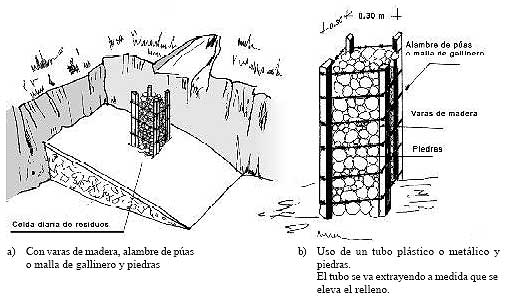 0.30 m
Alambre de púas
o malla de gallinero
Varas de madera
Piedras
Celda diaria de residuos
a) Con varas de madera, alambre de púas
o malla de gallinero y piedras
b) Uso de un tubo plástico o metálico y
piedras.
El tubo se va extrayendo a medida que se
eleva el relleno.